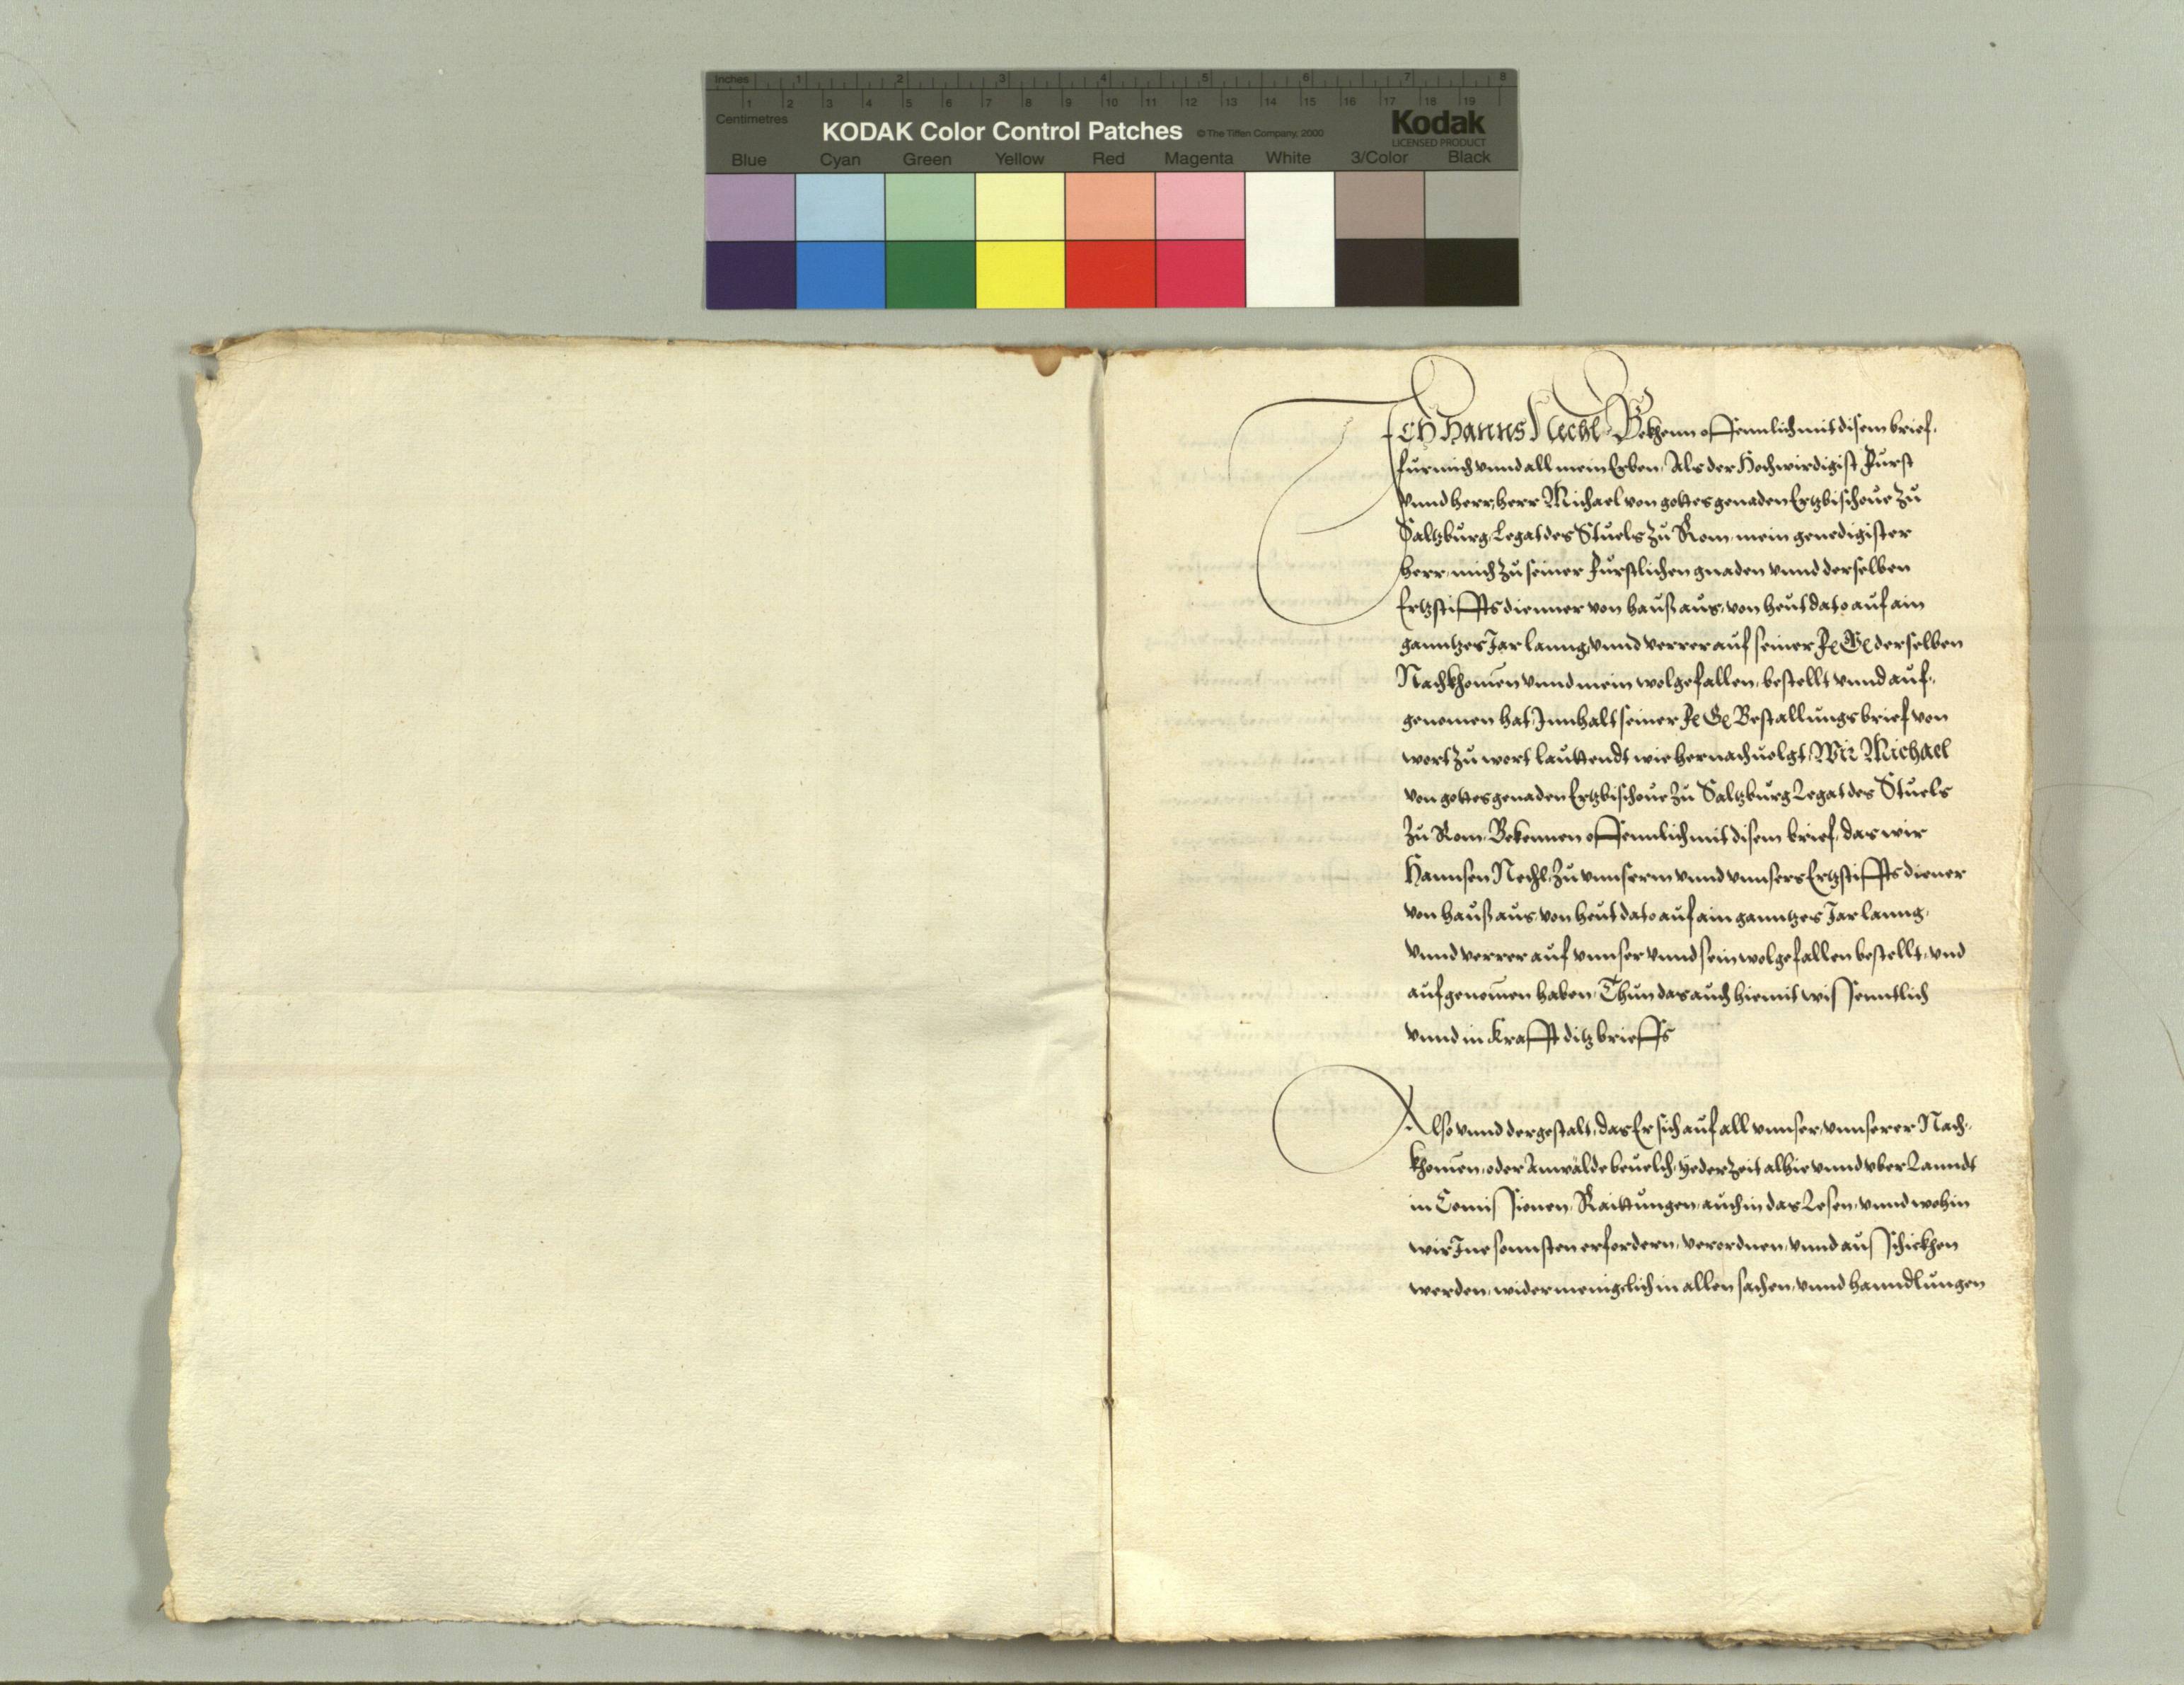 Inches 1 2 3 4 5 6 7 8
1 2 3 4 5 6 7 8 9 10 11 12 13 14 15 16 17 18 19
Centimetres
KODAK Color Control Patches © The Tiffen Company, 2000 Kodak
LICENSED PRODUCT
Blue Cyan Green Yellow Red Magenta White 3/Color Black
Ich Hanns Nechl Bekhenn offennlich mit disem brief,
fur mich vnnd all mein Erben, Als der Hochwirdigist Furst
vnnd herr, herr Michael von gottes genaden Ertzbischoue zu
Saltzburg, Legat des Stuels zu Rom, mein genedigister
herr, mich zu seiner Furstlichen gnaden vnnd derselben
Ertzstiffts dienner von hauß aus, von heut dato auf ain
ganntzes Jar lanng, vnnd verrer auf seiner F. G. derselben
Nachkhomen vnnd mein wolgefallen, bestellt vnnd auf-
genomen hat, Innhalt seiner F. G. Bestallungsbrief von
wort zu wort lauttendt wie hernachuolgt, Wir Michael
von gottes genaden Ertzbischoue zu Saltzburg Legat des Stuels
zu Rom, Bekennen offennlich mit disem brief, das wir
Hannsen Nechl, zu vnnserm vnnd vnnsers Ertzstiffts diener
von hauß aus, von heut dato auf ain ganntzes Jar lanng,
vnnd verrer auf vnnser vnnd sein wolgefallen bestellt, vnd
aufgenomen haben, Thun das auch hiemit wissenntlich
vnnd in krafft ditz brieffs
Also vnnd dergestalt, das Er sich auf all vnnser, vnnserer Nach-
khomen, oder Anwälde beuelch, yederzeit alhie vnnd vber Lanndt
in Comissionen, Raittungen, auch in das Lesen, vnnd wohin
wir Ine sonnsten erfordern, verordnen, vnnd ausschickhen
werden, wider menigelich in allen sachen, vnnd hanndlungen